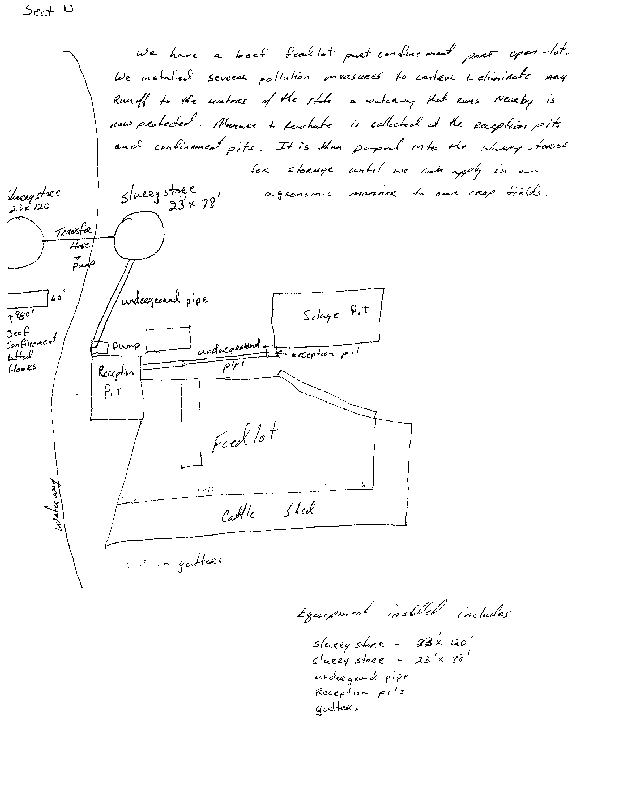 Sect N
We have a beef feedlot part confinement part open-lot.
We installed several pollution measures to control & eliminate any
runoff to the waters of the state a waterway that runs nearby is
now protected. Manure & leachate is collected at the reception pits
and confinement pits. It is then pumped into the slurry stores
for storage until we can apply in an
agronomic manner to our crop fields.
slurrystore
23'x 78'
slurrystore
23'x 120'
Transfer
Hose
+
Pump
underground pipe
40'
+ 980'
Beef
Confinement
Slatted
floors
Silage Pit
Pump
underground
pipe
reception pit
Reception
Pit
Feedlot
Cattle Shed
waterway
gutters
Equipment installed includes
slurry store - 23'x 120'
slurry store - 23'x 78'
underground pipe
Reception pits
gutters